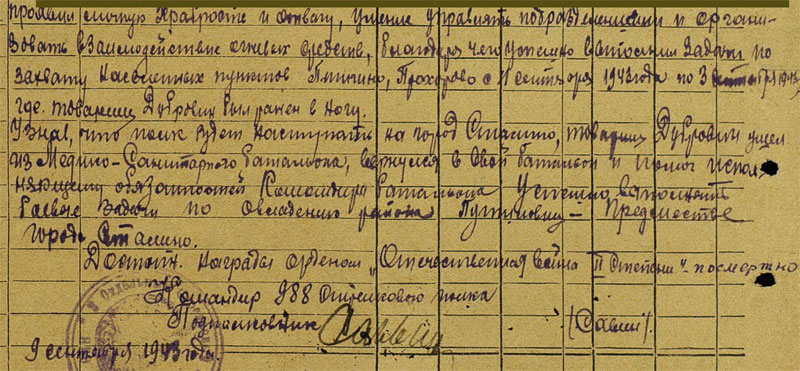 проявил личную храбрость и отвагу, умение управлять подразделениями и органи-
зовать взаимодействие огневых средств, благодаря чего успешно выполнил задачи по
захвату населенных пунктов Прохорово с 1 сентября 1943 года по 3 сентября 1943,
где товарищ Дубровин был ранен в ногу.
Узнав, что полк будет наступать на город Сталино, товарищ Дубровин ушел
из Медико-Санитарного батальона, вернулся в свой батальон и помог испол-
няющему обязанностей Командира батальона успешно выполнить
боевые задачи по овладению района Путиловец - Предместье
города Сталино.
Достоин награды орденом „Отечественная война II степени" - посмертно
Командир 988 стрелкового полка
Подполковник (Савин).
9 сентября 1943 года.